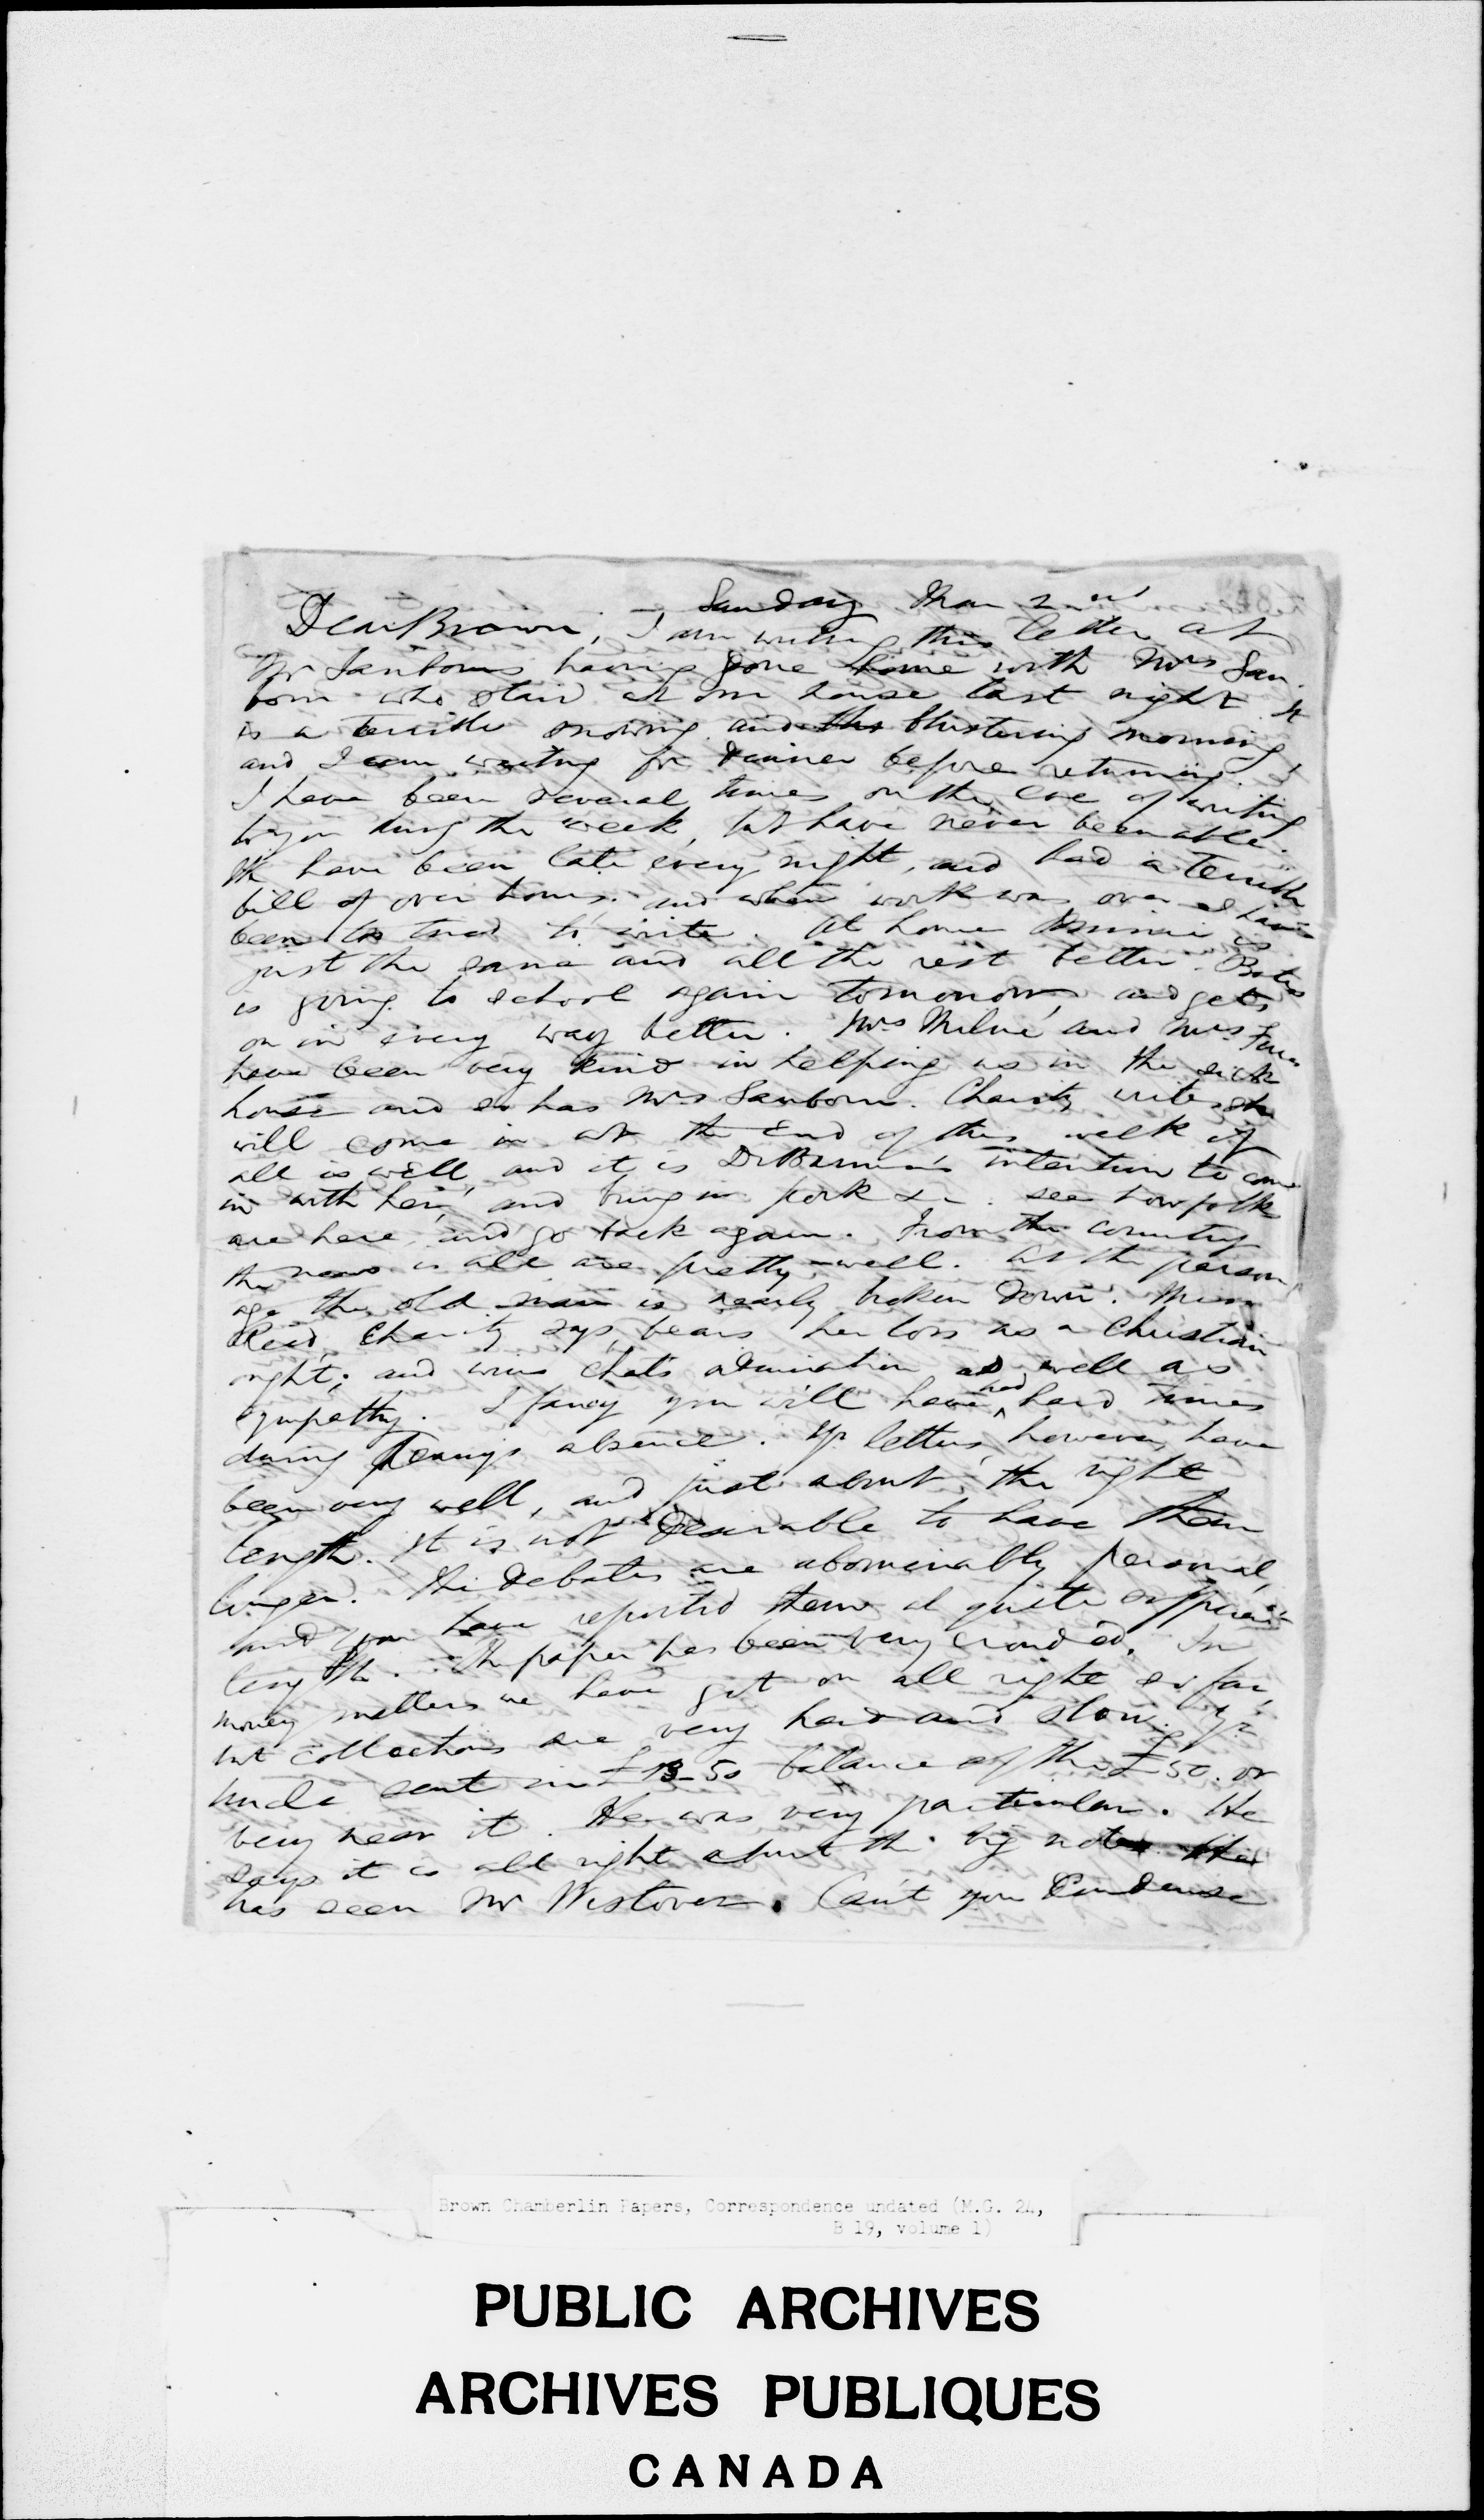 Sunday Mar 2nd
Dear Brown, I am writing this letter at
Mr Sanborns having gone home with Mrs San
born who staid at our house last night. It
is a terrible snowing and blustering morning,
and I am waiting for dinner before returning.
I have been several times on the eve of writing
to you during the week, but have never been able.
We have been late every night, and had a terrible
bill of over hours. and when work was over I have
been too tired to write. At home Minnie is
just the same and all the rest better.
is going to school again tomorrow, and gets
on in every way better. Mrs Milne and Mrs
have been very kind in helping us in the sick
house and so has Mrs Sanborn. Charity writes she
will come in at the end of this week if
all is well, and it is Dr intention to come
in with her, and bring in pork &c. see how folk
are here, and go back again. From the country
the news is all are pretty well. At the parson
age the old man is nearly broken down. Miss
Reid, Charity says, bears her loss as a Christian
ought; and wins Chat's admiration as well as
sympathy. I fancy you will have had hard times
during Penny's absence. Yr letters, however, have
been very well, and just about the right
length. It is not desirable to have them
longer. The debates are abominably personal,
and you have reported them at quite sufficient
length. The paper has been very crowded. In
money matters we have got on all right so far,
but collections are very hard and slow. Yr
uncle sent in £13-50 balance of the £50. or
very near it. He was very particular. He
says it is all right about the big note
has seen Mr Westover. Can't you condense
Brown Chamberlin Papers, Correspondence undated (M.G. 24,
B 19, volume 1)
PUBLIC ARCHIVES
ARCHIVES PUBLIQUES
CANADA